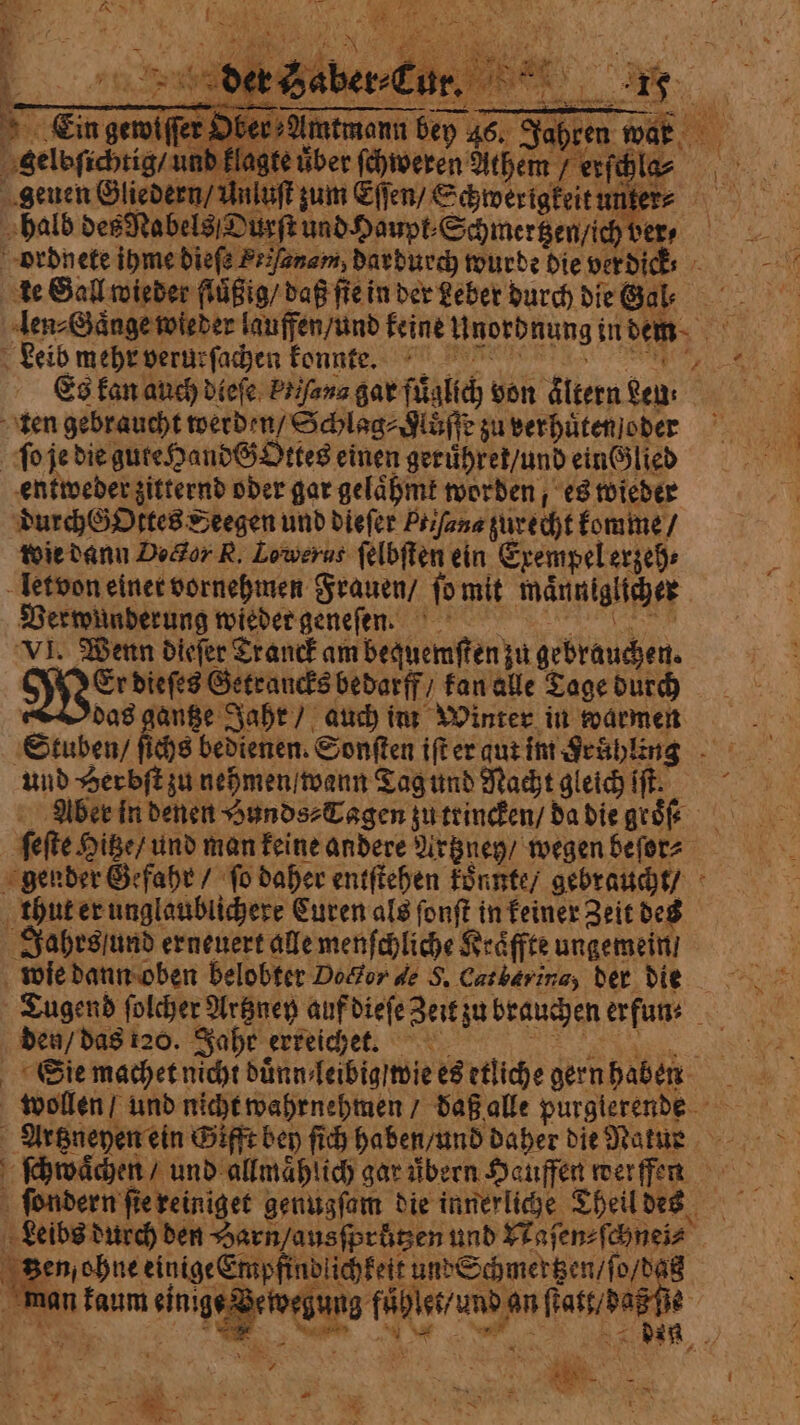 der Haber-Cur. 15
Ein gewiſſer Ober-Amtmann bey 46. Jahren war
gelbſichtig/ und klagte uͤber ſchweren Athem / erſchla-
genen Gliedern/ Unluſt zum Eſſen/ Schwerigkeit unter-
halb deß Nabels/ Durſt und Haupt-Schmertzen/ ich ver-
ordnete ihme dieſe Ptiſanam, dardurch wurde die verdick-
te Gall wieder fluͤßig/ daß ſie in der Leber durch die Gal-
len-Gaͤnge wieder lauffen/ und keine Unordnung in dem
Leib mehr verurſachen konnte.
Es kan auch dieſe Ptiſana gar fuͤglich von aͤltern Leu-
ten gebraucht werden/ Schlag-Fluͤſſe zu verhuͤten/ oder
ſo je die gute Hand GOttes einen geruͤhret/ und ein Glied
entweder zitternd oder gar gelaͤhmt worden, es wieder
durch GOttes Seegen und dieſer Ptiſana zurecht komme /
wie dann Doctor R. Lowerus ſelbſten ein Exempel erzeh-
let von einer vornehmen Frauen/ ſo mit maͤnniglicher
Verwunderung wieder geneſen.
VI. Wenn dieſer Tranck am bequemſten zu gebrauchen.
WEr dieſes Getrancks bedarff / kan alle Tage durch
das gantze Jahr / auch im Winter in warmen
Stuben/ ſichs bedienen. Sonſten iſt er gut im Fruͤhling
und Herbſt zu nehmen/ wann Tag und Nacht gleich iſt.
Aber in denen Hunds-Tagen zu trincken/ da die groͤſ-
ſeſte Hitze/ und man keine andere Artzney/ wegen beſor-
gender Gefahr / ſo daher entſtehen koͤnnte/ gebraucht/
thut er unglaublichere Curen als ſonſt in keiner Zeit des
Jahrs/ und erneuert alle menſchliche Kraͤffte ungemein/
wie dann oben belobter Doctor de S. Catharina, der die
Tugend ſolcher Artzney auf dieſe Zeit zu brauchen erfun-
den/ das 120. Jahr erreichet.
Sie machet nicht duͤnn-leibig/ wie es etliche gern haben
wollen/ und nicht wahrnehmen / daß alle purgierende
Artzneyen ein Gifft bey ſich haben/ und daher die Natur
ſchwaͤchen / und allmaͤhlich gar uͤbern Hauffen werffen
ſondern ſie reiniget genugſam die innerliche Theil des
Leibs durch den Harn/ ausſpruͤtzen und Naſen-ſchnei-
tzen, ohne einige Empfindlichkeit und Schmertzen/ ſo/ daß
man kaum einige Bewegung fuͤhlet/ und an ſtatt/ daß ſie
den